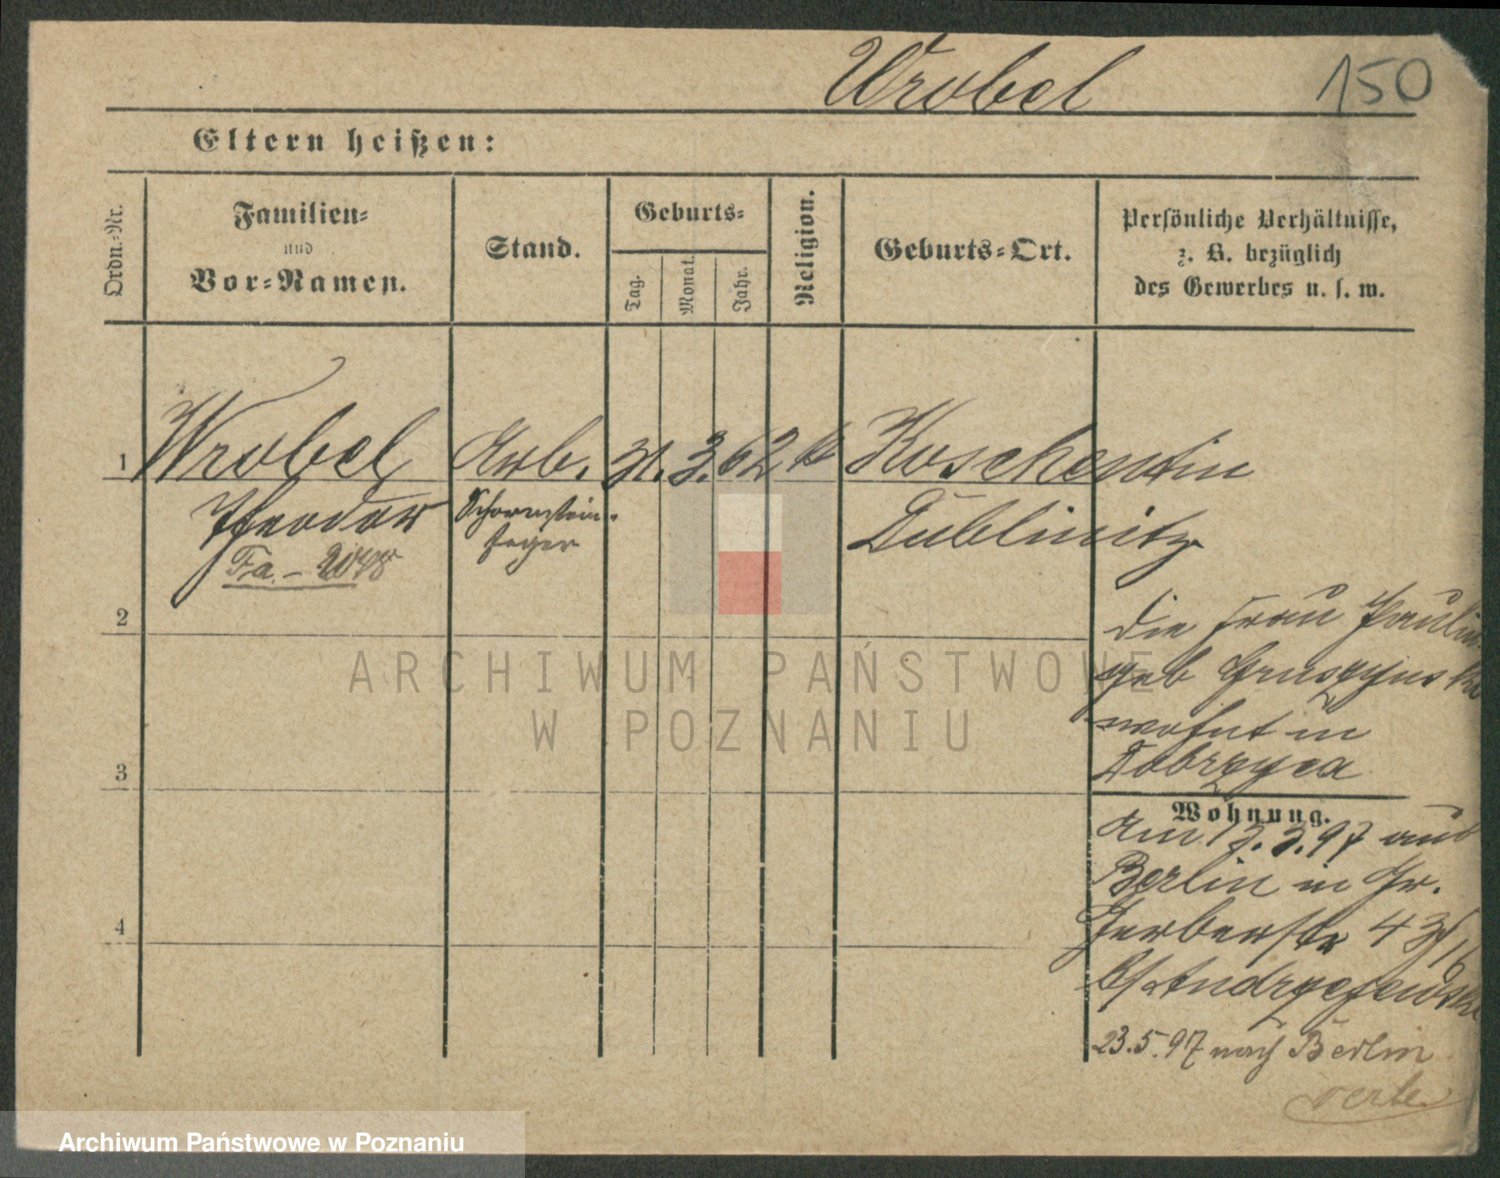 Wrobel 150
Eltern heißen:
Ordn.-Nr.
Familien-
und
Vor-Namen.
Stand.
Geburts-
Tag.
Monat.
Jahr.
Religion.
Geburts-Ort.
Persönliche Verhältnisse,
z. B. bezüglich
des Gewerbes u. s. w.
1 Wrobel Arb. 31. 3. 62 k Koschentin
Theodor Schornstein- Lublinitz
feger
Fa. –
2
die Frau Paulin
geb
wohnt in
Dobrzyca
3
Wohnung.
Am 13.3.97 aus
Berlin in Gr.
Gerberstr 4
4
b/ Andrzejewski
23.5.97 nach Berlin
verte
ARCHIWUM PAŃSTWOWE
W POZNANIU
Archiwum Państwowe w Poznaniu